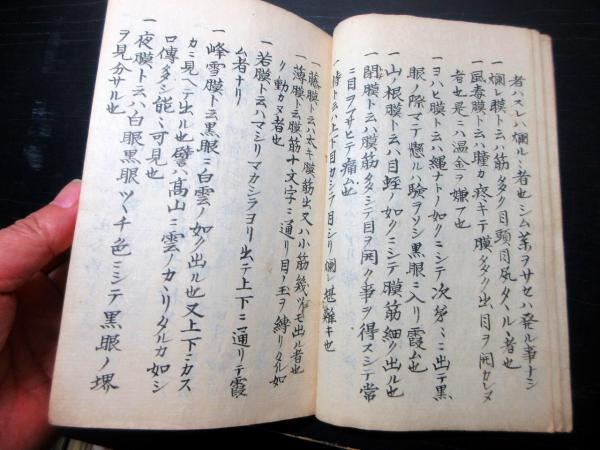 者ハスレハ爛ルヽ者也シム薬ヲサセハ発ル事ナシ
一爛レ膜ト云ハ筋多ク目頭目尻タヽル者也
一風毒膜ト云ハ瞳カ疼キテ膜タダク出目ヲ開カレヌ
者也是ニハ温金ヲ嫌フ也
一ヨハヒ膜ト云ハ縄ナトノ如クニシテ次第ニ出テ黒
眼ノ際マテ懸ルハ験ヲソシ黒眼ニ入リ霞ム也
一山ノ根膜ト云ハ目蛭ノ如クミシテ膜筋細ク出ル也
一閉膜ト云ハ膜筋タダシテ目ヲ開ク事ヲ得スシテ常
ニ目ヲフサヒテ痛ム也
一膜ト云ハ上下目カシラ目シリ爛レ堪難キ也
一藤膜ト云ハ太キ膜筋出又ハ小筋幾ツモ出ル者也
一薄膜ト云膜筋十文字ニ通リ目ノ玉ヲ縛リタル如
リ動カヌ者也
一若膜ト云ハマミリマカシラヨリ出テ上下ニ通リテ霞
ム者ナリ
一峰雪膜ト云黒眼ニ白雲ノ如ク出ル也又上下ニカス
カミ見ヘテ出ル也譬ハ髙山ミ雲ノカヽリタルカ如シ
口傳多シ能ミ可見也
一夜膜ト云ハ白眼黒眼ツヽチ色ミシテ黒眼ノ堺
ヲ見分サル也